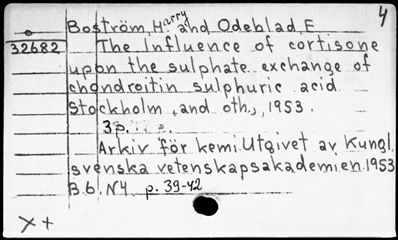 4
Boström, H. Harry and Odeblad, E
32682 The Influence of cortisone
upon the sulphate exchange of
chondroitin sulphuric acid.
Stockholm, and oth., 1953.
3p.
Arkiv för kemi. Utgivet av Kungl.
svenska vetenskapsakademien. 1953
B. 6. N4 p. 39-42
X +